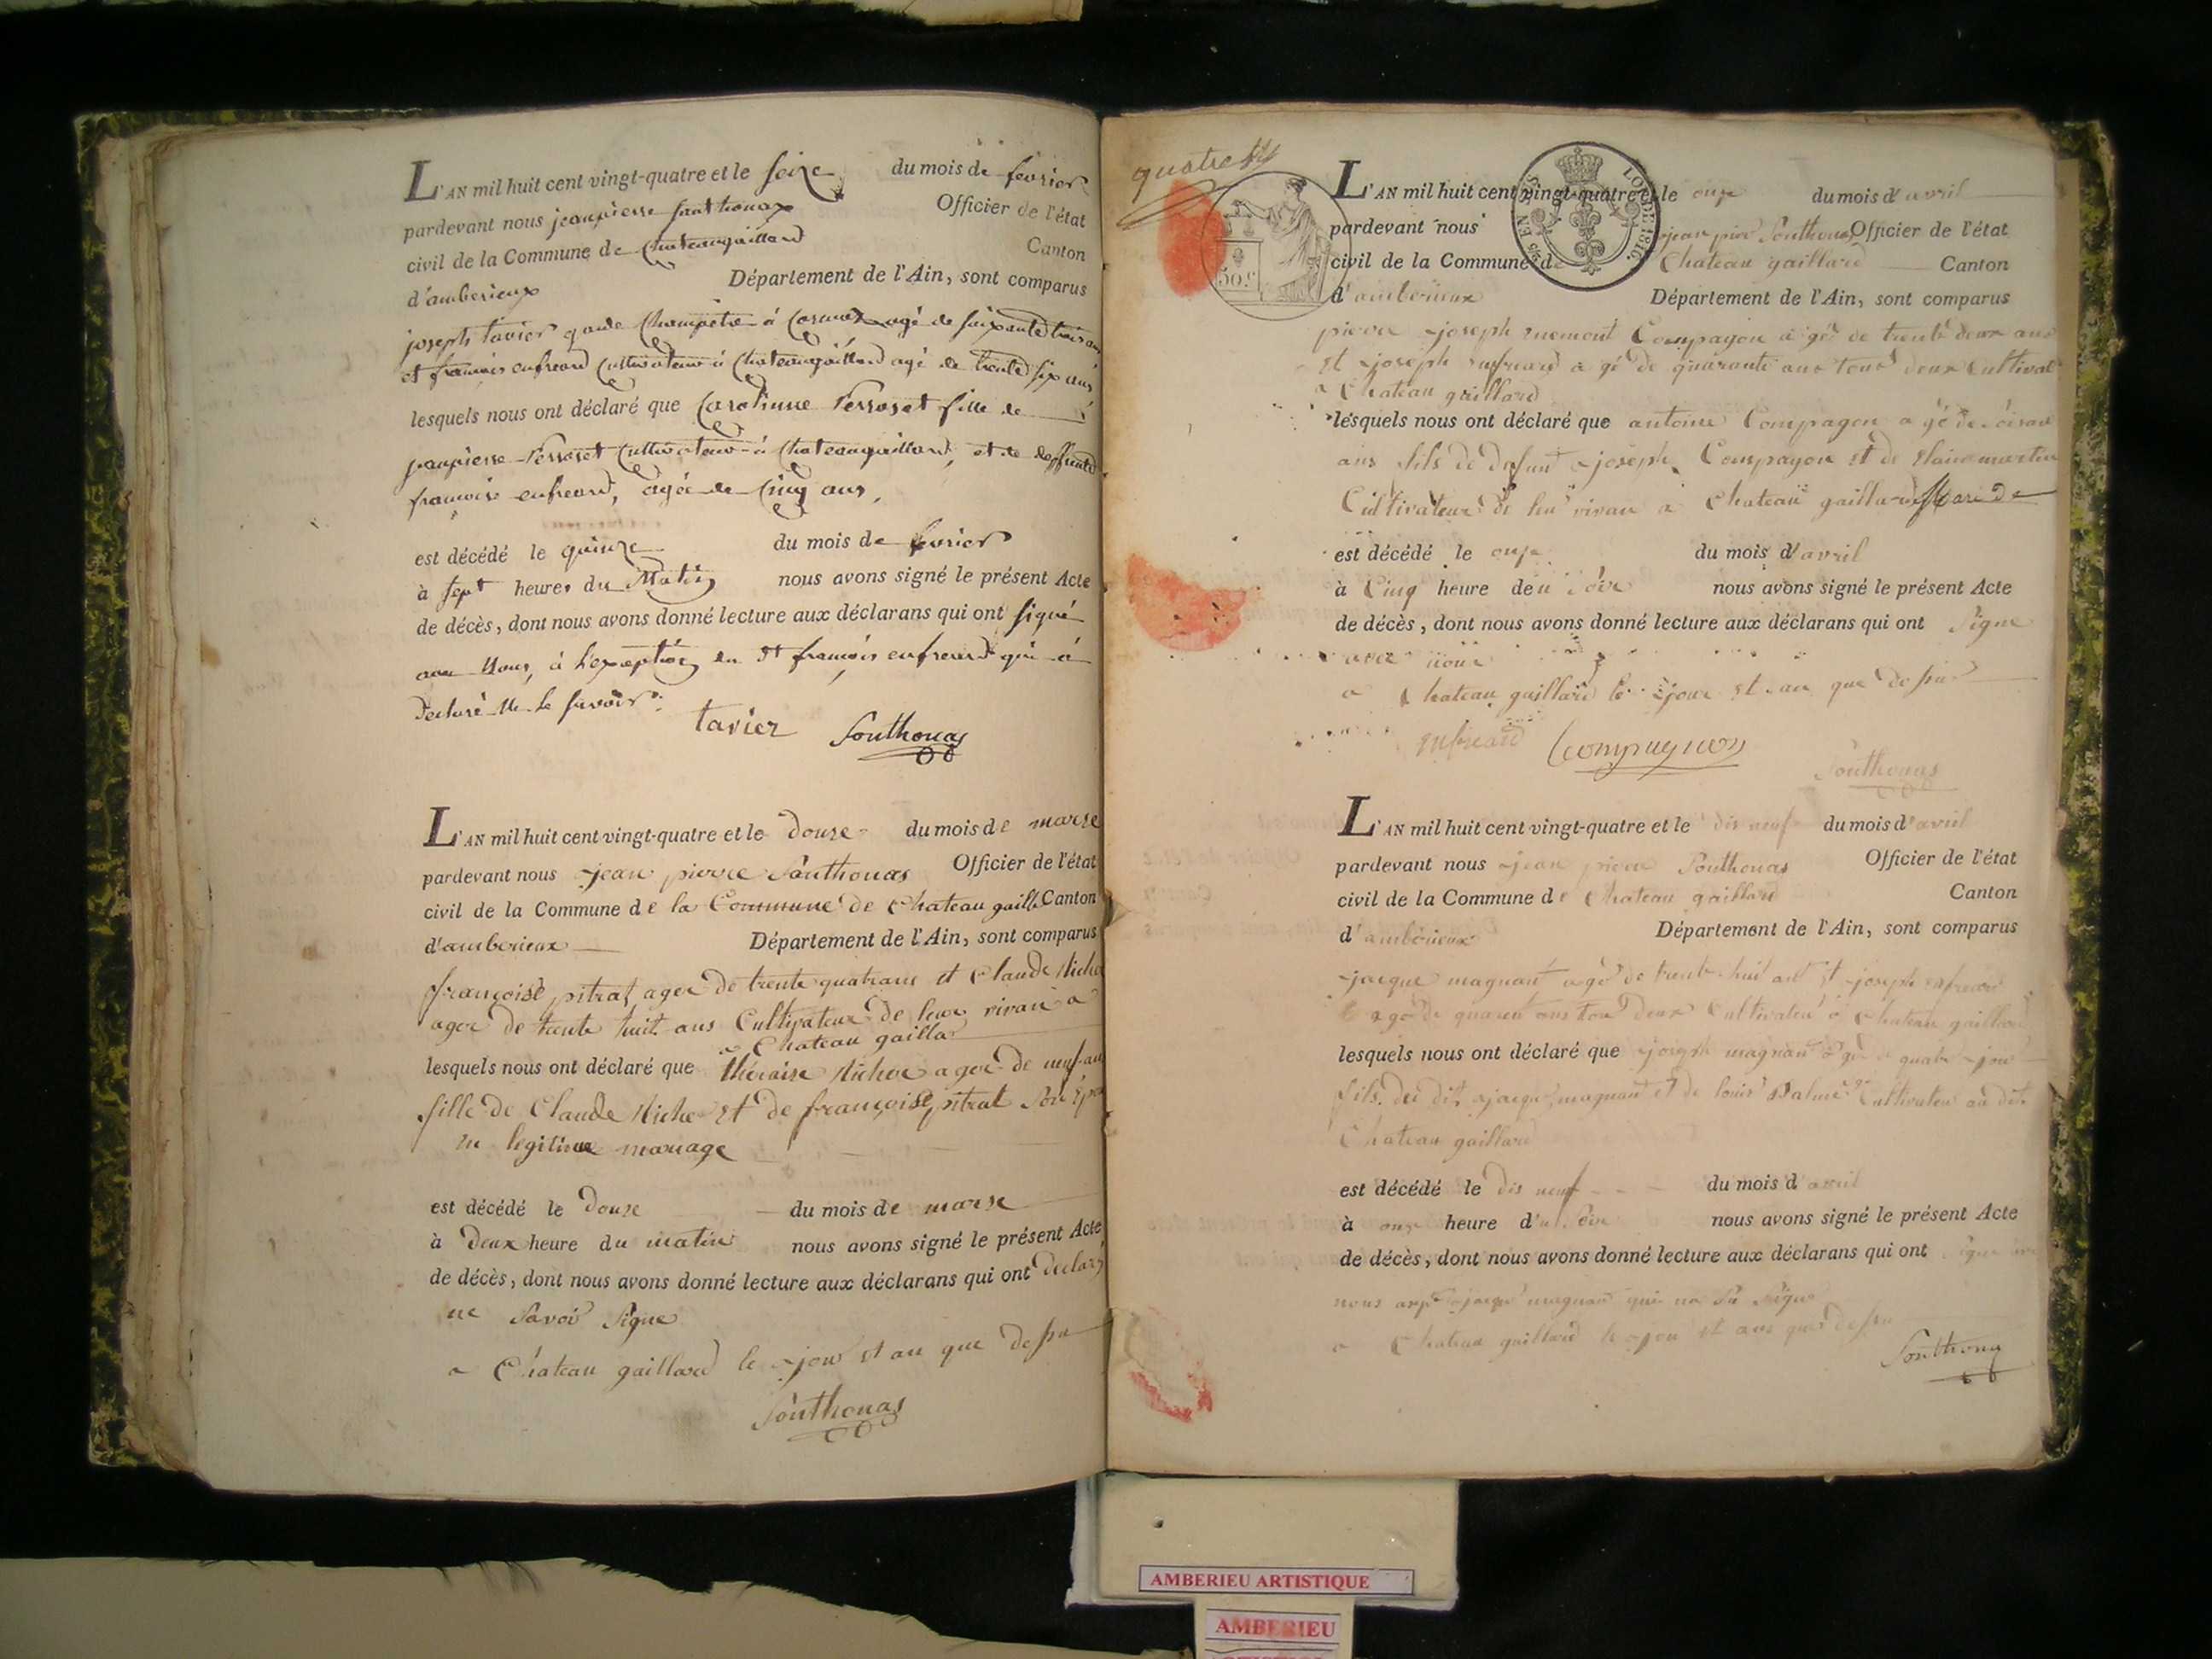 L'AN mil huit cent vingt-quatre et le seize du mois de fevrier
pardevant nous jeanpierre Southonax Officier de l'état
civil de la Commune de Chateaugaillard Canton
d'amberieux Département de l'Ain, sont comparus
joseph tavier garde Champetre à agé de soixante trois ans
et francois enfreard Cultivateur à Chateaugaillard agé de trente six ans
lesquels nous ont déclaré que Caroline Perroset fille de
jeanpierre Perroset Cultivateur à Chateaugaillard, et de deffunte
francoise enfreard, agée de Cinq ans,
est décédé le quinze du mois de fevrier
à sept heures du Matin nous avons signé le présent Acte
de décès, dont nous avons donné lecture aux déclarans qui ont signé
avec Nous, à l'exception du dt francois enfreard qui a
declaré Ne le savoir.
tavier Southonas
L'AN mil huit cent vingt-quatre et le douse du mois de marse
pardevant nous jean pierre Southonas Officier de l'état
civil de la Commune de la Commune de Chateau gailla Canton
d'amberieux Département de l'Ain, sont comparus
françoise pitrat agee de trente quatrans et Claude Niche
agee de trente huit ans Cultivateur de leur vivan a
a Chateau gailla
lesquels nous ont déclaré que théraise agee de neuf an
fille de Claude Niche et de françoise pitrat Son Epou
en legitime mariage
est décédé le douse du mois de marse
à deux heure du matin nous avons signé le présent Acte
de décès, dont nous avons donné lecture aux déclarans qui ont declaré
ne Savoir Signe
a Chateau gaillard le jour et an que dessu
Southonas
quatre
L'AN mil huit cent vingt-quatre et le onze du mois d'avril
pardevant nous jean pierre Southonas Officier de l'état
civil de la Commune de Chateau gaillard Canton
d'amberieux Département de l'Ain, sont comparus
50 c.
LOI DE 1816.
pierre joseph Compagon a gé de trente deux ans
et joseph enfreard a gé de quarante ans tous deux Cultivat
a Chateau gaillard
lesquels nous ont déclaré que antoine Compagon a gé de
ans fils de defunt joseph Compagon et de Claine martin
Cultivateur de leu vivan a Chateau gaillard
est décédé le onze du mois d'avril
à Cinq heure deu soir nous avons signé le présent Acte
de décès, dont nous avons donné lecture aux déclarans qui ont Signe
avec nous
a Chateau gaillard le jour et an que dessus
enfreard Compagnon
Southonas
L'AN mil huit cent vingt-quatre et le dis neuf du mois d'avril
pardevant nous jean pierre Southonas Officier de l'état
civil de la Commune de Chateau gaillard Canton
d'amberieux Département de l'Ain, sont comparus
jacque magnan agé de trente huit ant et joseph enfreard
agé de quarent ans tou deux Cultivateu a Chateau gaillard
lesquels nous ont déclaré que joseph magnan agé quatr jour
fils du dit jacque magnan et de louis Cultivateu au dit
Chateau gaillard
est décédé le dis neuf du mois d'avril
à onze heure d'u soir nous avons signé le présent Acte
de décès, dont nous avons donné lecture aux déclarans qui ont Signe
nous jacque magnan qui na su signe
a Chateau gaillard le jour et ans que dessu
Southona
AMBERIEU ARTISTIQUE
AMBERIEU